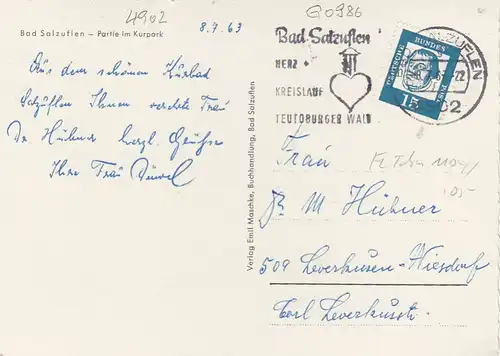 4902
G0986
8.7.63
Bad Salzuflen – Partie im Kurpark
Aus dem schönen Kurbad
Salzuflen Ihnen verehrte Frau
Dr. Hübner herzl. Grüße
Ihre Frau
Verlag Emil Maschke, Buchhandlung, Bad Salzuflen
Bad Salzuflen
HERZ
KREISLAUF
TEUTOBURGER WALD
SALZUFLEN
DEUTSCHE BUNDESPOST
15
Frau
Dr. M Hübner
509 Leverkusen-Wiesdorf
Carl Leverkusstr.